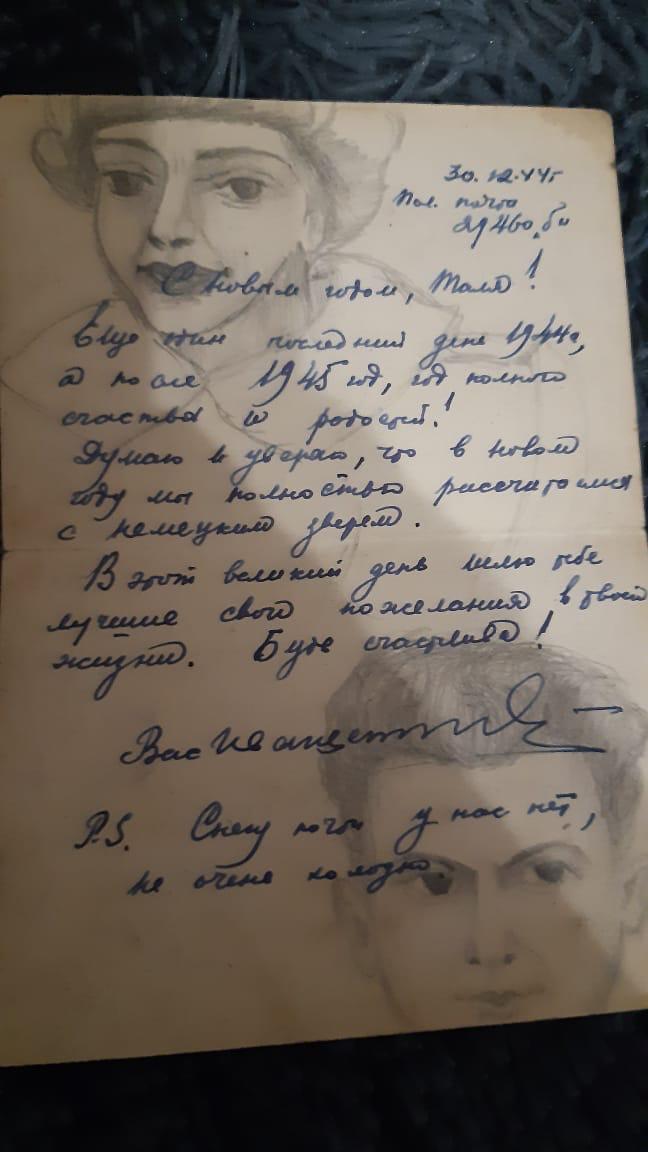 30.12.44г
Пол. почта
29460 „Б“
С новым годом, Толя!
Еще один последний день 1944г,
а после 1945 год, год полного
счастья и радостей!
Думаю и уверяю, что в новом
году мы полностью рассчитаемся
с немецким зверем.
В этот великий день шлю тебе
лучшие свои пожелания в твоей
жизни. Будь счастлива!
Вас
P.S. Снегу почти у нас нет,
не очень холодно.